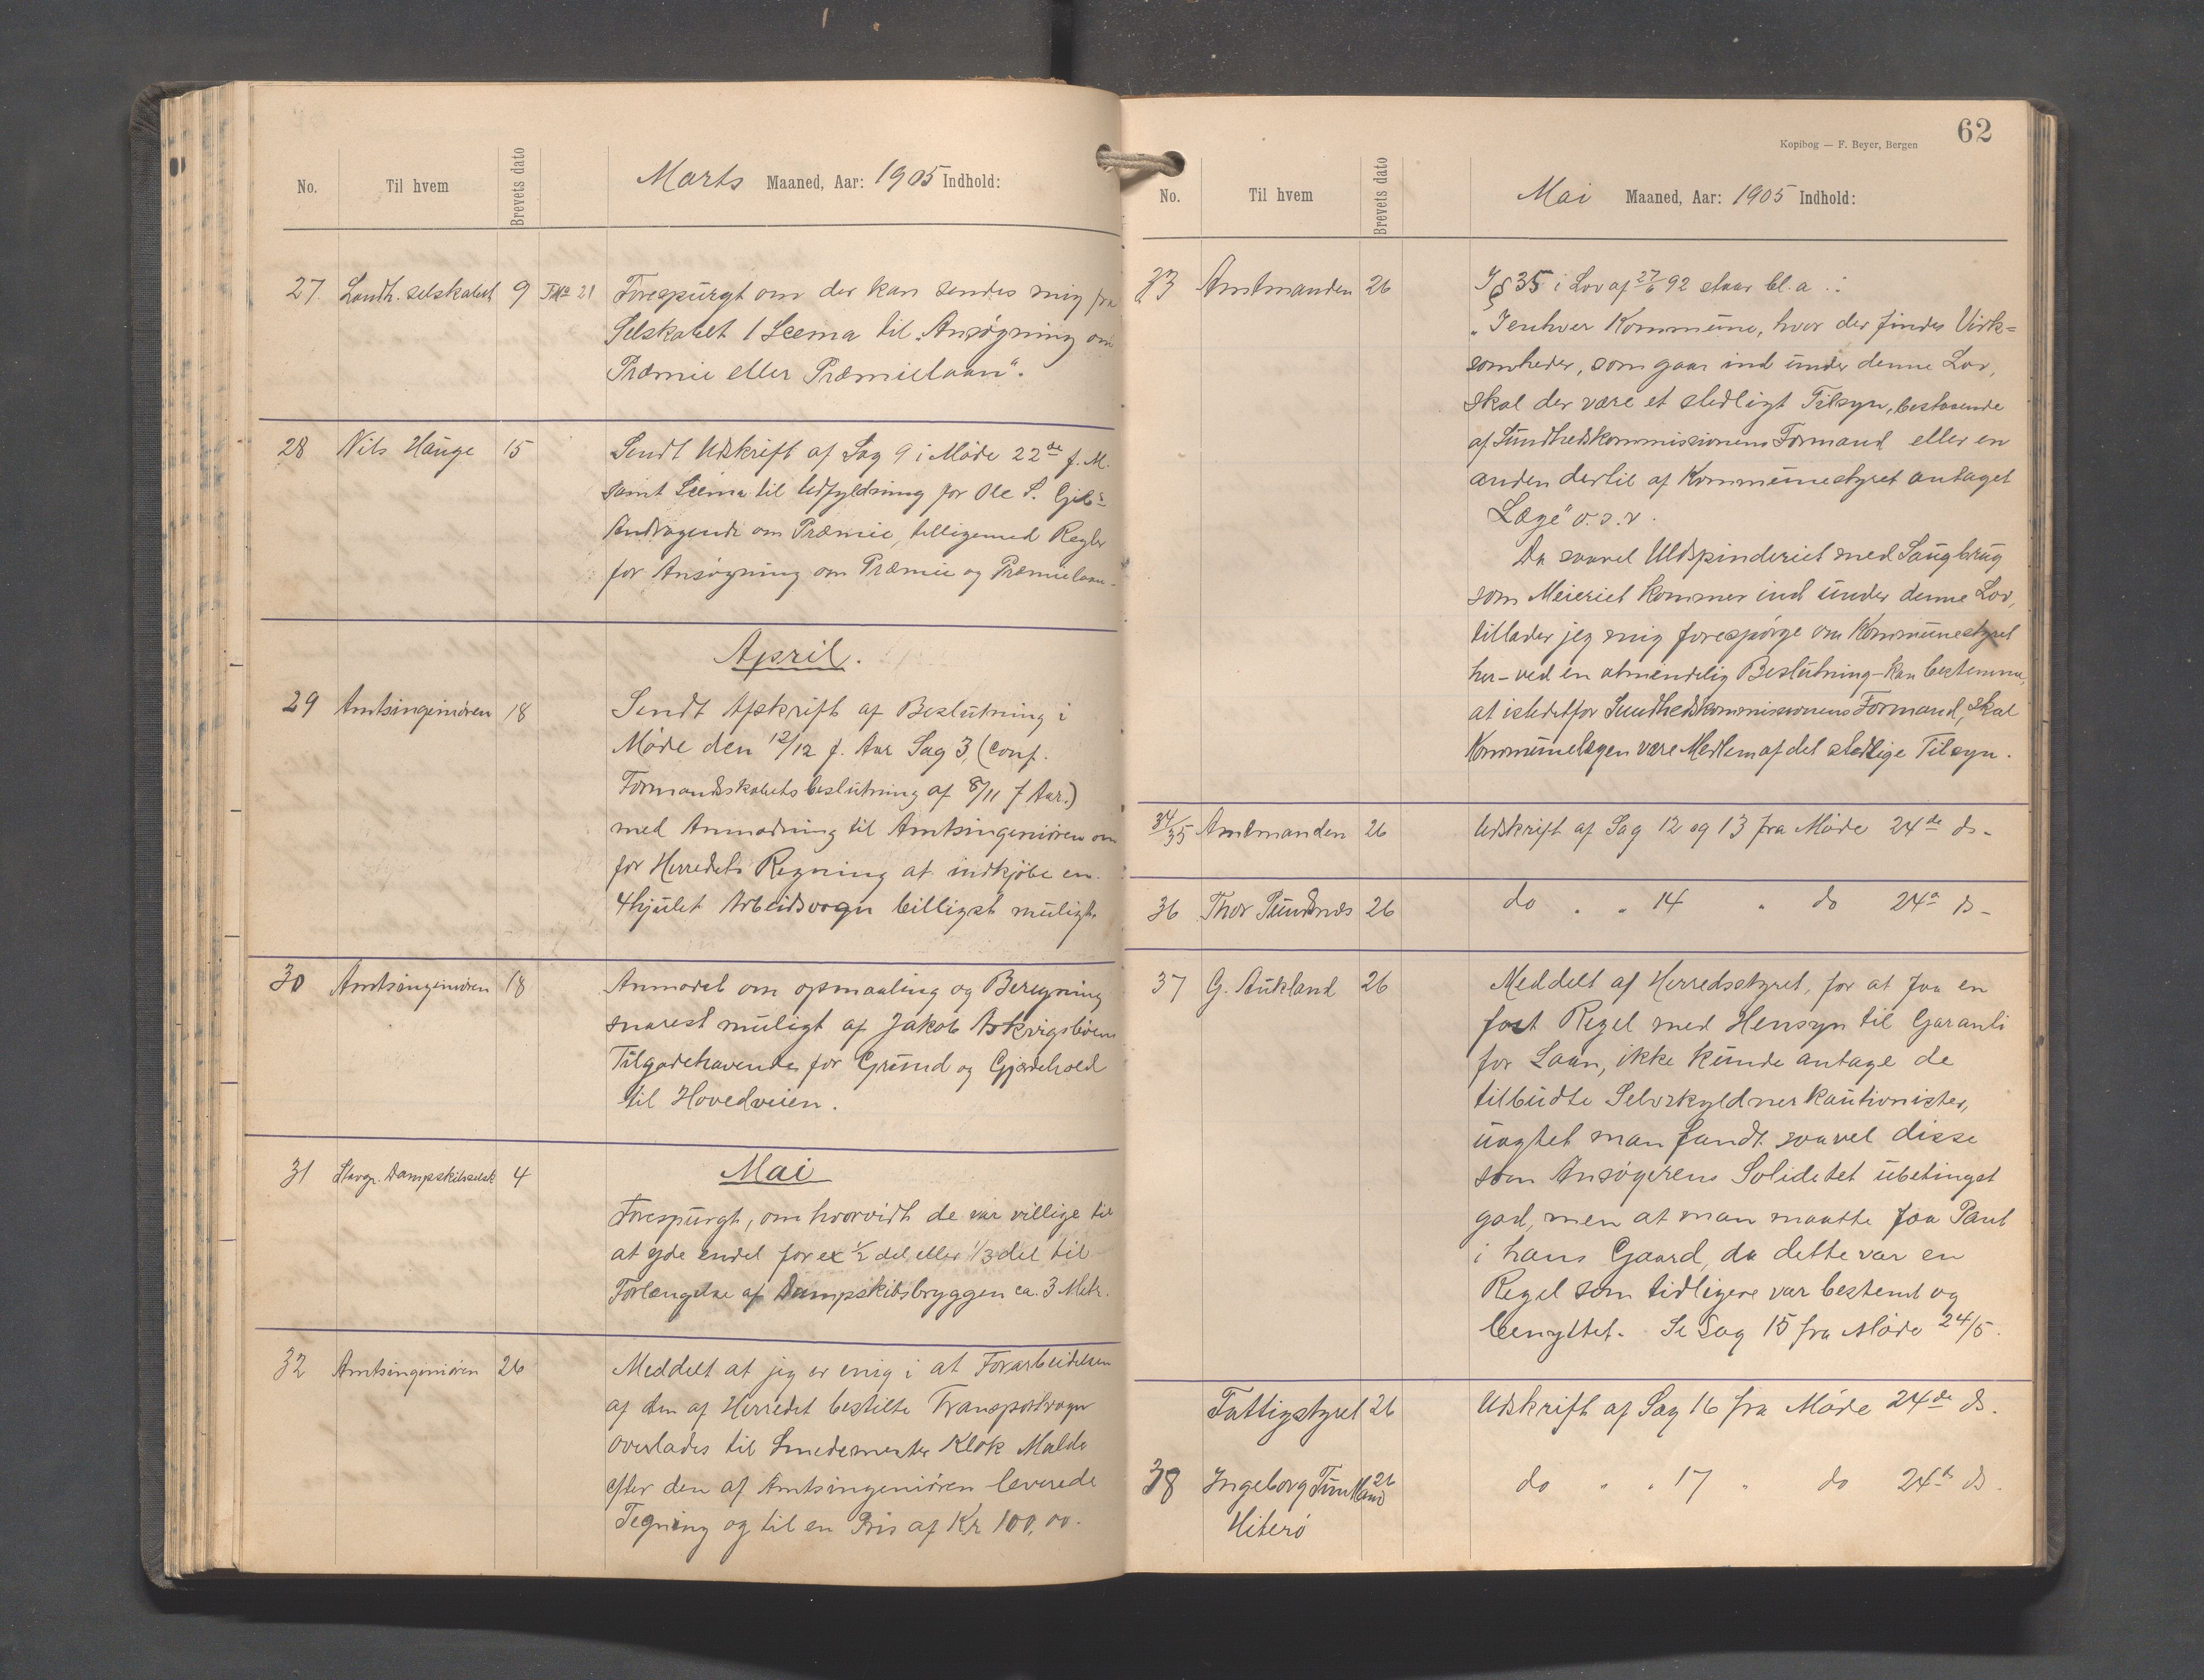 No. Til hvem Brevets dato Marts Maaned, Aar: 1905 Indhold:
27 Landh. selskabet 9 Forespurgt om der kan sendes mig fra
Selskabet 1 Scema til „Ansøgning om
Præmie eller Præmielaan".
28 Nils Hauge 15 Sendt Udskrift af Sag 9 i Møde 22de f. M.
samt Scema til Udfyldning for Ole S.
Andragende om Præmie, tilligemed Regler
for Ansøgning om Præmie og Præmielaan.
April.
29 Amtsingeniøren 18 Sendt Afskrift af Beslutning i
Møde den 12/12 f. Aar Sag 3, (conf.
Formandsskabets beslutning af 8/11 f Aar.)
med Anmodning til Amtsingeniøren om
for Herredets Regning at indkjøbe en
4hjulet Arbeidsvogn billigst muligt.
30 Amtsingeniøren 18 Anmodet om opmaaling og Beregning
snarest muligt af Jakob
Tilgodehavende for Grund og Gjærdehold
til Hovedveien.
31 Stavgr. Dampskibsselsk 4 Mai
Forespurgt, om hvorvidt de var villige til
at yde endel for ex 1/2 del eller 1/3 del til
Forlængelse af Dampskibsbryggen ca. 3 Metr.
32 Amtsingeniøren 26 Meddelt at jeg er enig i at Forarbeidelsen
af den af Herredet bestilte Transportvogn
overlades til Smedemester Klok Malde
efter den af Amtsingeniøren leverede
Tegning og til en Pris af Kr 100,00.
62
Kopibog — F. Beyer, Bergen
No. Til hvem Brevets dato Mai Maaned, Aar: 1905 Indhold:
33 Amtmanden 26 I § 35 i Lov af 27/6 92 staar bl. a.:
„I enhver Kommune, hvor der findes Virk=
somheder, som gaar ind under denne Lov,
skal der være et stedligt Tilsyn, bestaaende
af Sundhedskommissionens Formand eller en
anden dertil af Kommunestyret antaget
Læge" o.s.v.
Da saavel Uldspinderiet med Saugbrug
som Meieriet kommer ind under denne Lov,
tillader jeg mig forespørge om Kommunestyret
her – ved en almindelig Beslutning – kan bestemme,
at istedetfor Sundhedskommissionens Formand, skal
Kommunelægen være Medlem af det stedlige Tilsyn.
34/35 Amtmanden 26 Udskrift af Sag 12 og 13 fra Møde 24de ds.
36 Thor 26 do " " 14 " do 24de ds.
37 G. Aukland 26 Meddelt af Herredsstyret, for at faa en
fast Regel med Hensyn til Garanti
for Laan, ikke kunde antage de
tilbudte Selvskyldnerkautionister,
uagtet man fandt saavel disse
som Ansøgerens Soliditet ubetinget
god, men at man maatte faa Pant
i hans Gaard, da dette var en
Regel som tidligere var bestemt og
benyttet. Se Sag 15 fra Møde 24/5.
Fattigstyret 26 Udskrift af Sag 16 fra Møde 24de ds.
38 Ingeborg 26 do " " 17 " do 24de ds.
Hiterø